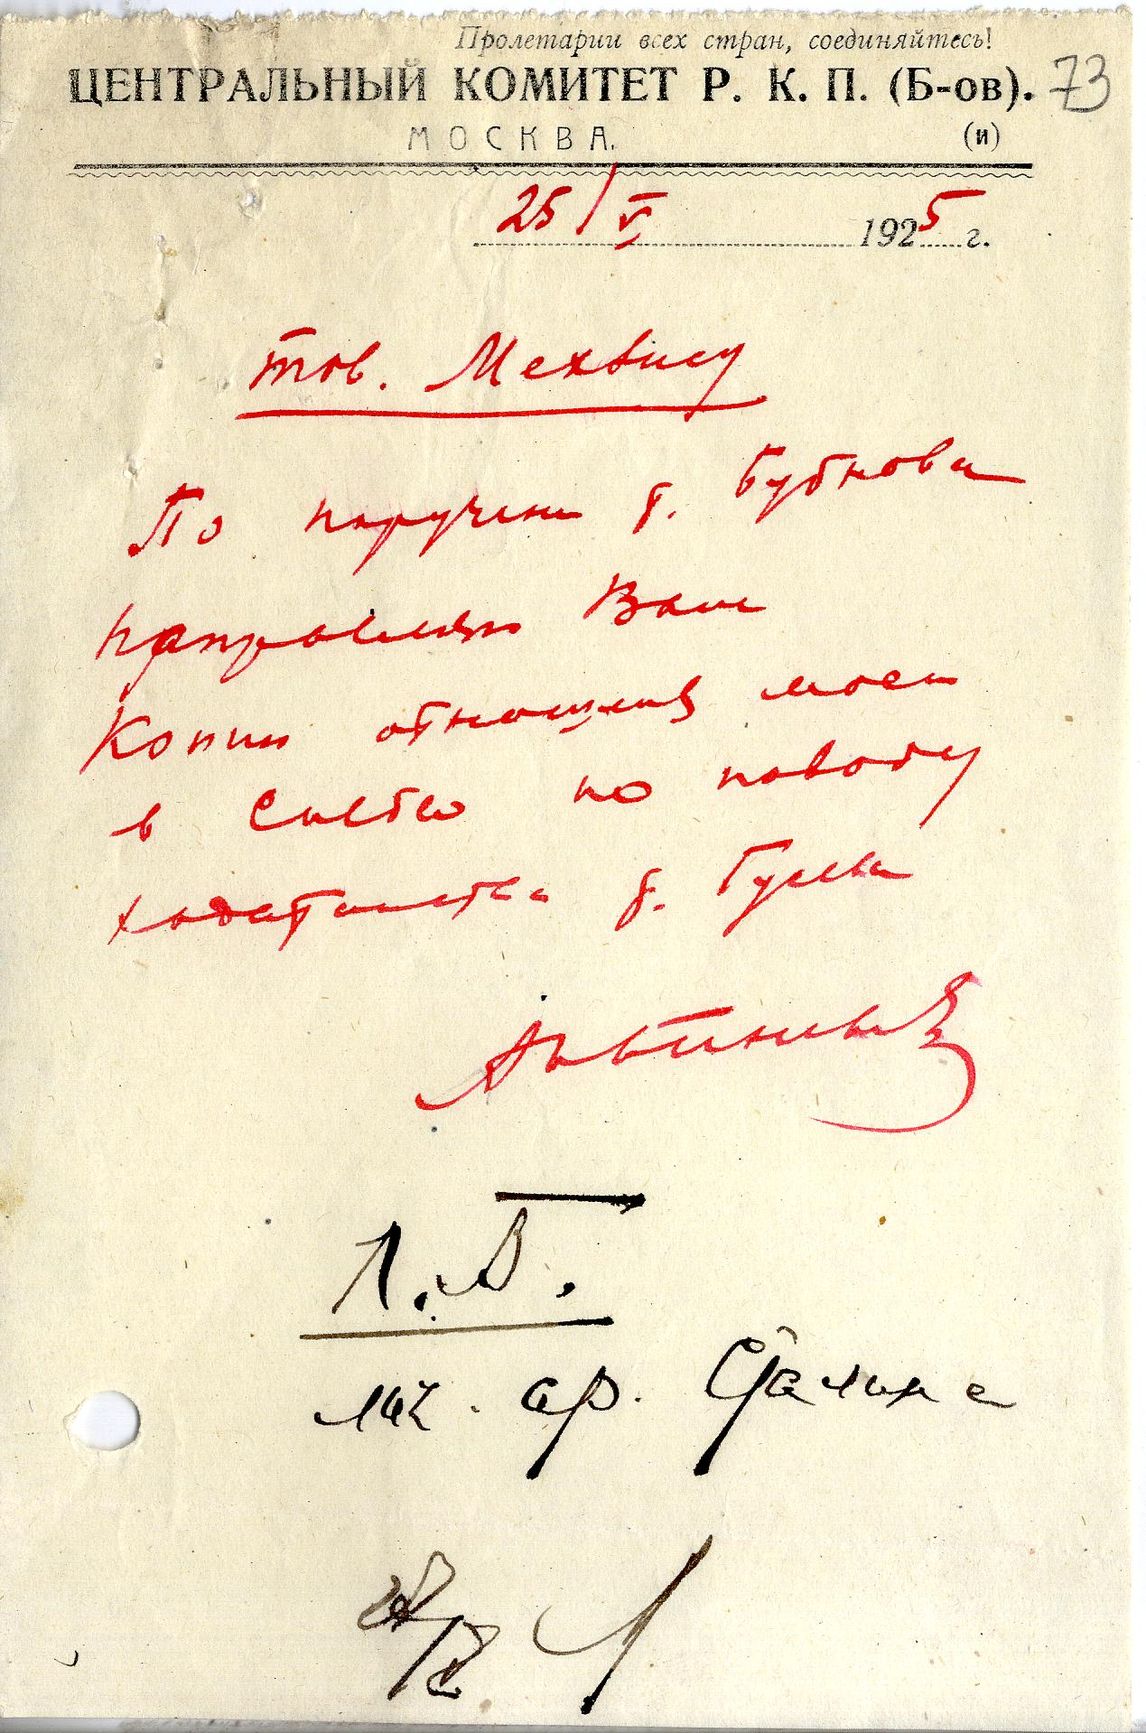 Пролетарии всех стран, соединяйтесь!
ЦЕНТРАЛЬНЫЙ КОМИТЕТ Р. К. П. (Б-ов). 73
МОСКВА. (и)
25/V 1925 г.
тов. Мехлису
По поручению т. Бубнова
направляю Вам
Копию отношения моего
в по поводу
ходатайства т. Гусева
Л.В.
лич. ар. Сталина